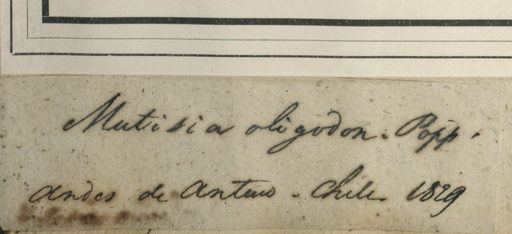 Mutisia oligodon. Popp.
Andes de Antuco - Chile 1829